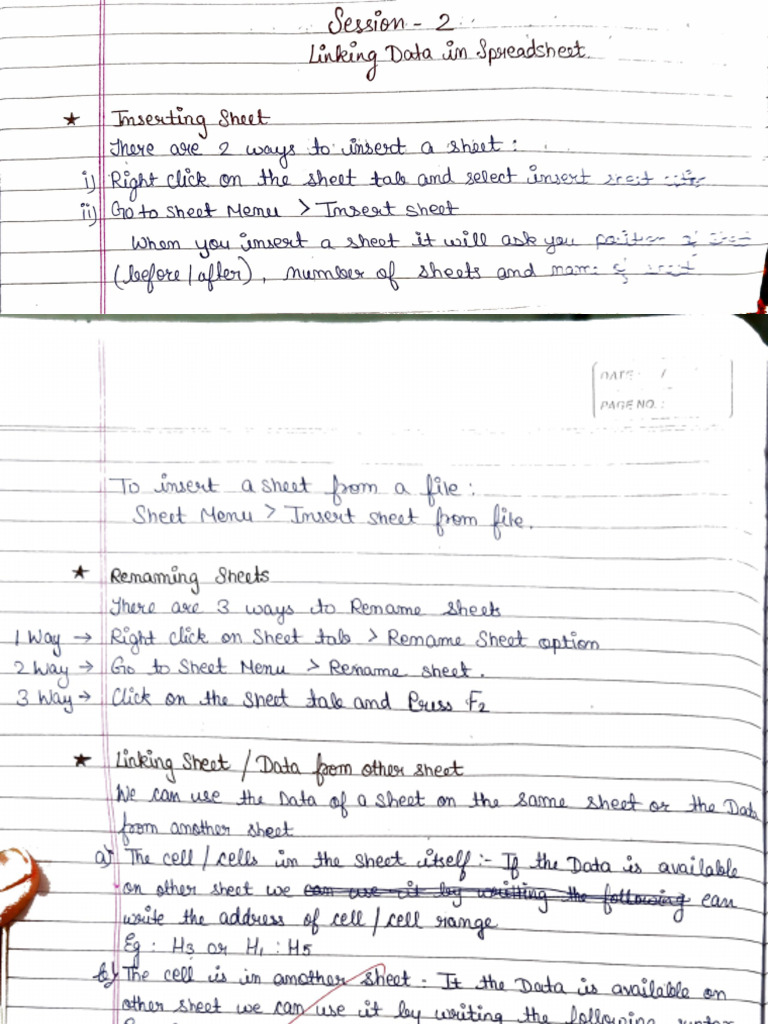 Session - 2
Linking Data in Spreadsheet.
★ Inserting Sheet
There are 2 ways to insert a sheet :
i) Right click on the sheet tab and select insert
ii) Go to Sheet Menu > Insert sheet
When you insert a sheet it will ask you
(before / after), number of sheets and
DATE : /
PAGE NO. :
To insert a sheet from a file :
Sheet Menu > Insert sheet from file.
★ Renaming Sheets
There are 3 ways to Rename Sheets
1 Way → Right click on Sheet tab > Rename Sheet option
2 Way → Go to Sheet Menu > Rename sheet.
3 Way → Click on the sheet tab and Press F2
★ Linking Sheet / Data from other sheet
We can use the Data of a sheet on the same sheet or the Data
from another sheet
a) The cell / cells in the sheet itself :- If the Data is available
on other sheet we can use it by writting the following can
write the address of cell / cell range
Eg : H3 or H1 : H5
b) The cell is in another sheet - If the Data is available on
other sheet we can use it by writing the following